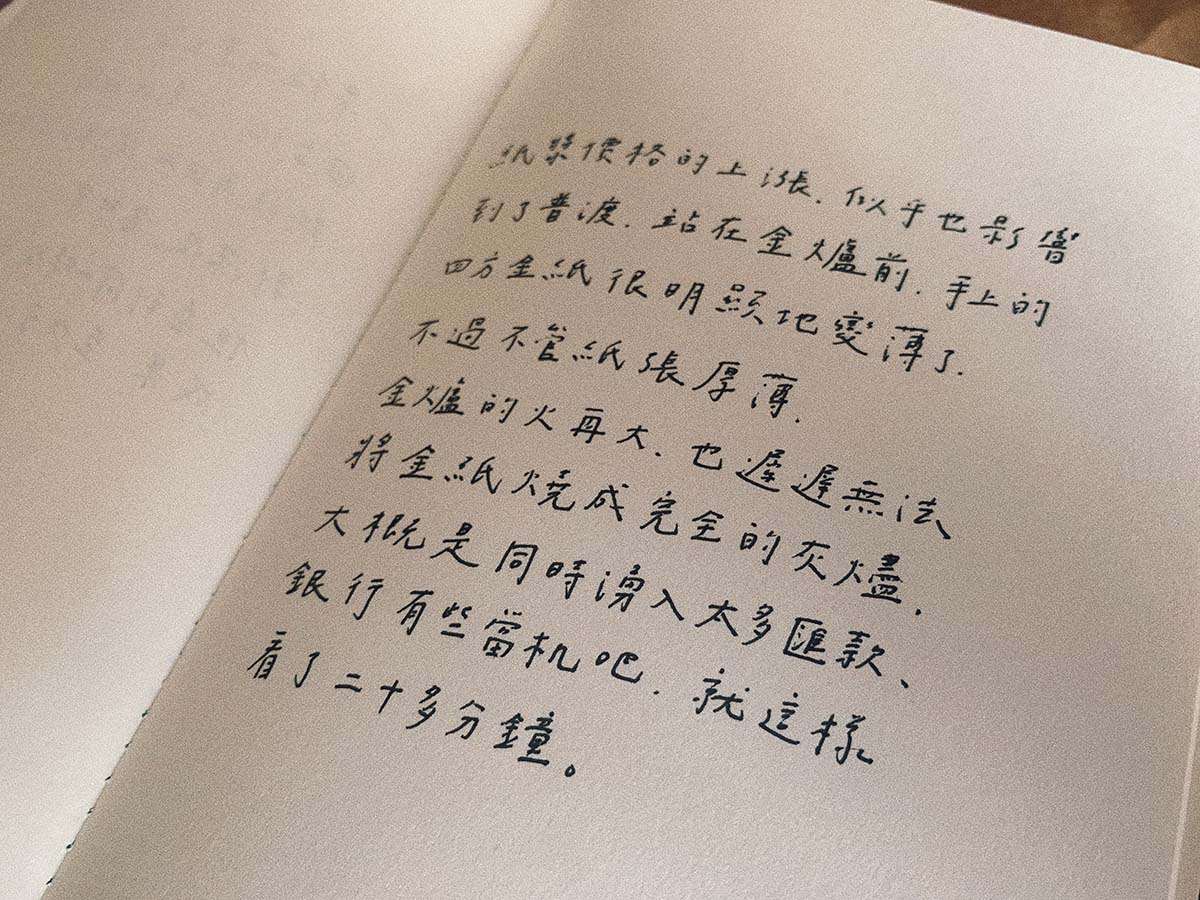 紙漿價格的上漲，似乎也影響
到了普渡，站在金爐前，手上的
四方金紙很明顯地變薄了，
不過不管紙張厚薄，
金爐的火再大、也遲遲無法
將金紙燒成完全的灰燼，
大概是同時湧入太多匯款、
銀行有些當机吧，就這樣
看了二十多分鐘。